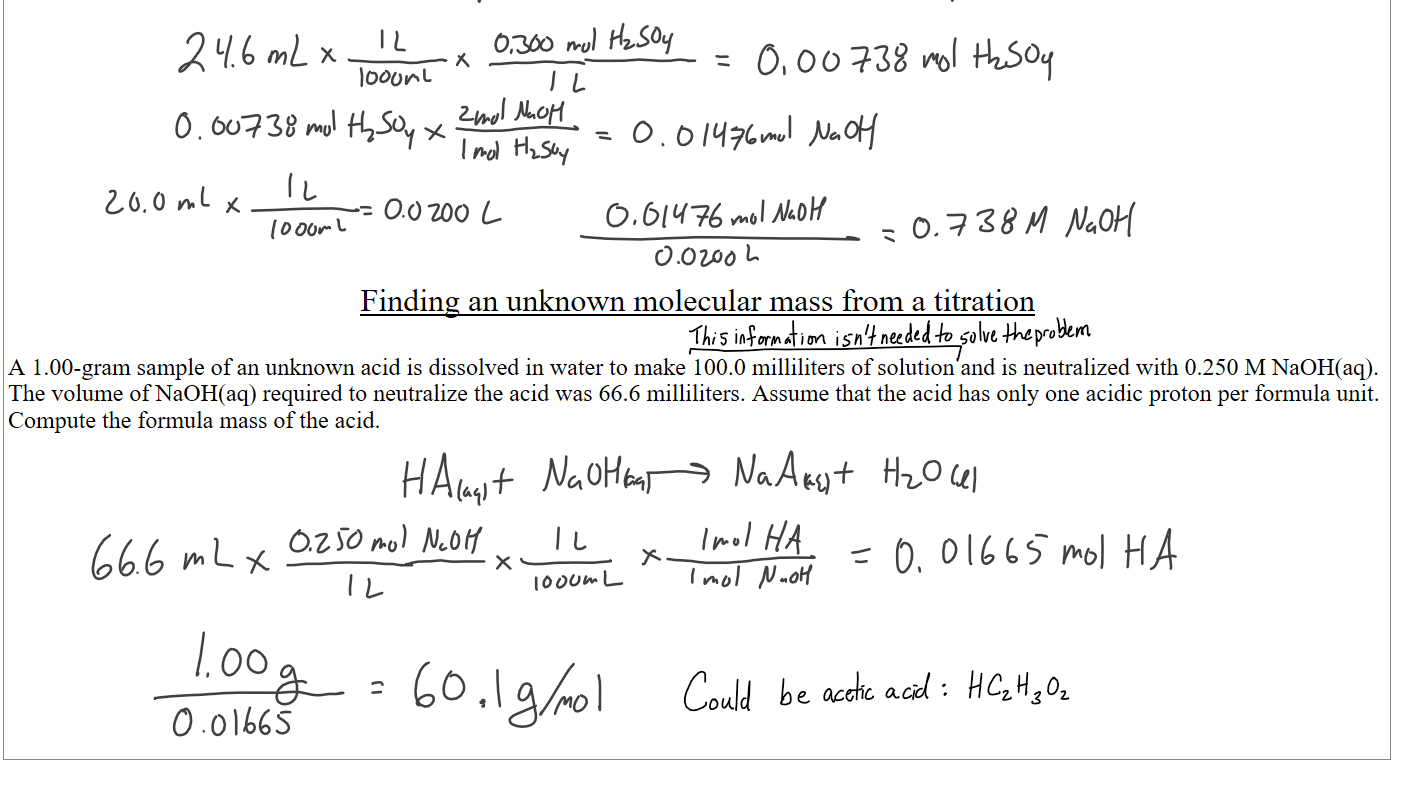 24.6 mL x 1L/1000mL x 0.300 mol H₂SO₄/1 L = 0.00738 mol H₂SO₄
0.00738 mol H₂SO₄ x 2mol NaOH/1mol H₂SO₄ = 0.01476mol NaOH
20.0 mL x 1L/1000mL = 0.0200 L 0.01476 mol NaOH/0.0200 L = 0.738 M NaOH
Finding an unknown molecular mass from a titration
This information isn't needed to solve the problem
A 1.00-gram sample of an unknown acid is dissolved in water to make 100.0 milliliters of solution and is neutralized with 0.250 M NaOH(aq).
The volume of NaOH(aq) required to neutralize the acid was 66.6 milliliters. Assume that the acid has only one acidic proton per formula unit.
Compute the formula mass of the acid.
HA(aq) + NaOH(aq) → NaA(aq) + H₂O(l)
66.6 mL x 0.250 mol NaOH/1L x 1L/1000mL x 1mol HA/1mol NaOH = 0.01665 mol HA
1.00g/0.01665 = 60.1g/mol Could be acetic acid: HC₂H₃O₂